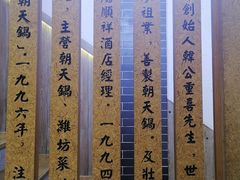 創始人韓公重喜先生，世
祖業，善製朝天鍋，及壯
順祥酒店經理，一九九四
，主營朝天鍋、濰坊菜
朝天鍋」，一九九六年，注